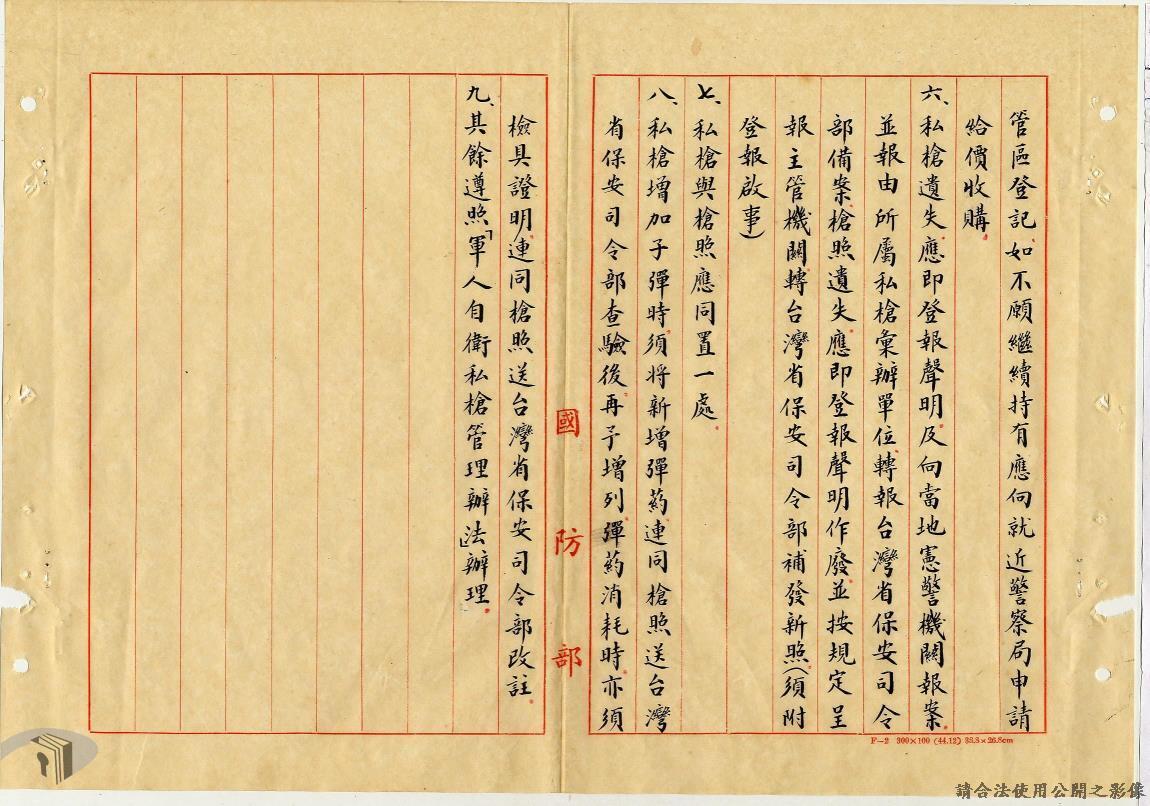 管區登記、如不願繼續持有應向就近警察局申請
給價收購。
六、私槍遺失、應即登報聲明及向當地憲警機關報案、
並報由所屬私槍彙辦單位、轉報台灣省保安司令
部備案、槍照遺失應即登報聲明作廢、並按規定呈
報主管機關轉台灣省保安司令部補發新照、(須附
登報啟事)
七、私槍與槍照應同置一處。
八、私槍增加子彈時、須將新增彈葯、連同槍照送台灣
省保安司令部查驗後、再予增列、彈葯消耗時、亦須
檢具證明、連同槍照送台灣省保安司令部改註。
九、其餘遵照「軍人自衛私槍管理辦法」辦理。
國防部
F－2 300×100 (44.12) 38.8×26.8cm
請合法使用公開之影像